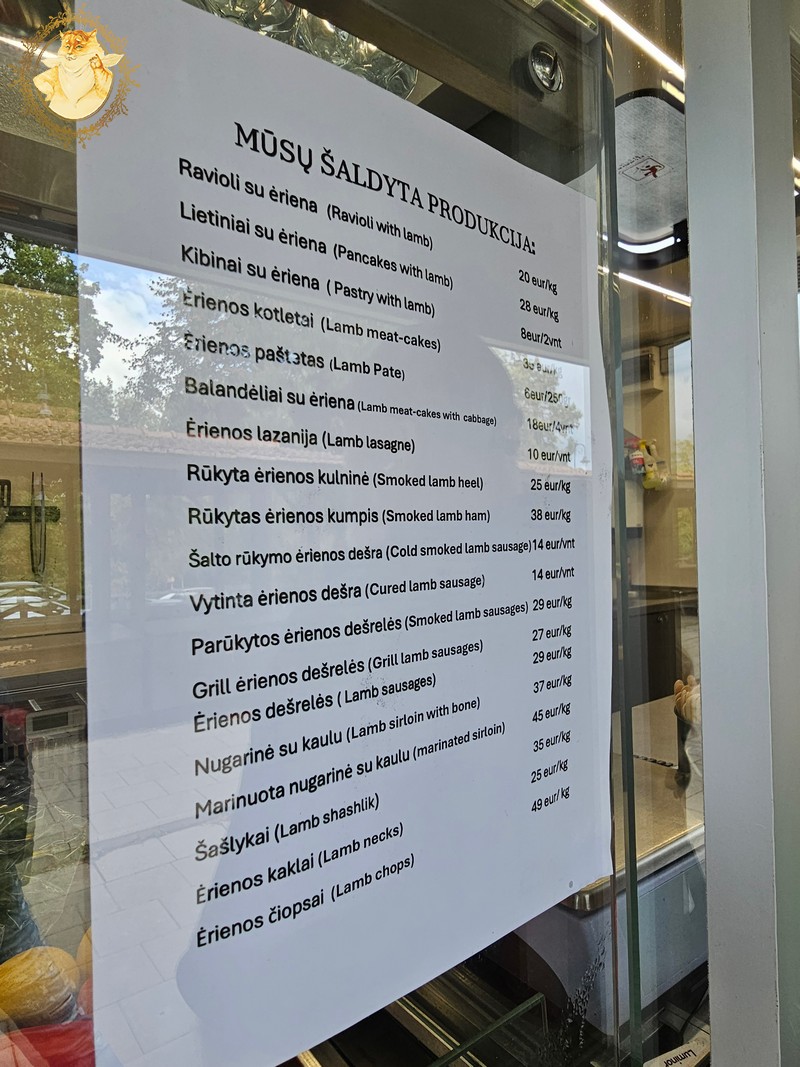 MŪSŲ ŠALDYTA PRODUKCIJA:
Ravioli su ėriena (Ravioli with lamb) 20 eur/kg
Lietiniai su ėriena (Pancakes with lamb) 28 eur/kg
Kibinai su ėriena ( Pastry with lamb) 8eur/2vnt
Ėrienos kotletai (Lamb meat-cakes)
Ėrienos paštetas (Lamb Pate)
Balandėliai su ėriena (Lamb meat-cakes with cabbage) 18eur/4vnt
Ėrienos lazanija (Lamb lasagne) 10 eur/vnt
Rūkyta ėrienos kulninė (Smoked lamb heel) 25 eur/kg
Rūkytas ėrienos kumpis (Smoked lamb ham) 38 eur/kg
Šalto rūkymo ėrienos dešra (Cold smoked lamb sausage) 14 eur/vnt
Vytinta ėrienos dešra (Cured lamb sausage) 14 eur/vnt
Parūkytos ėrienos dešrelės (Smoked lamb sausages) 29 eur/kg
Grill ėrienos dešrelės (Grill lamb sausages) 27 eur/kg
Ėrienos dešrelės ( Lamb sausages) 29 eur/kg
Nugarinė su kaulu (Lamb sirloin with bone) 37 eur/kg
Marinuota nugarinė su kaulu (marinated sirloin) 45 eur/kg
Šašlykai (Lamb shashlik) 35 eur/kg
Ėrienos kaklai (Lamb necks) 25 eur/kg
Ėrienos čiopsai (Lamb chops) 49 eur/ kg
Luminor